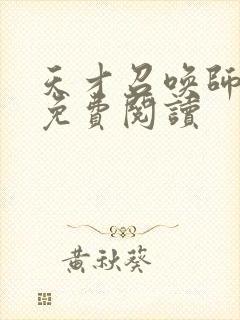 天才召喚師
免費閱讀
黃秋葵